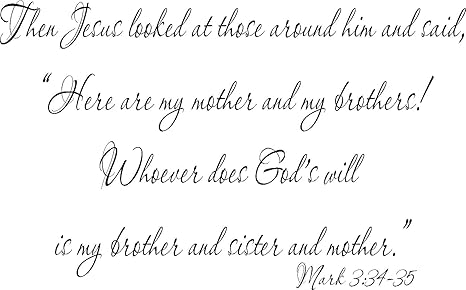 Then Jesus looked at those around him and said,
“Here are my mother and my brothers!
Whoever does God's will
is my brother and sister and mother.”
Mark 3:34-35